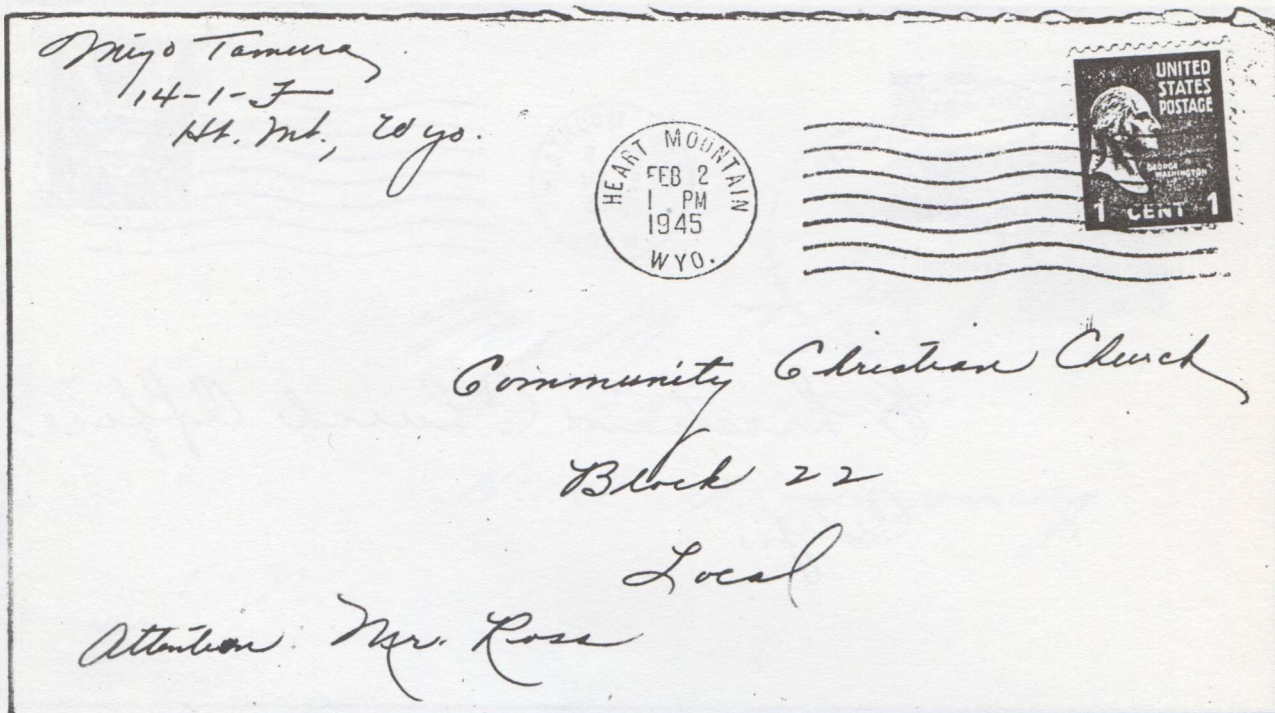 Miyo Tamura
14-1-F
Ht. Mt., Wyo.
HEART MOUNTAIN
FEB 2
1 PM
1945
WYO.
UNITED
STATES
POSTAGE
GEORGE
WASHINGTON
1 CENT 1
Community Christian Church
Block 22
Local
Attention Mr. Ross